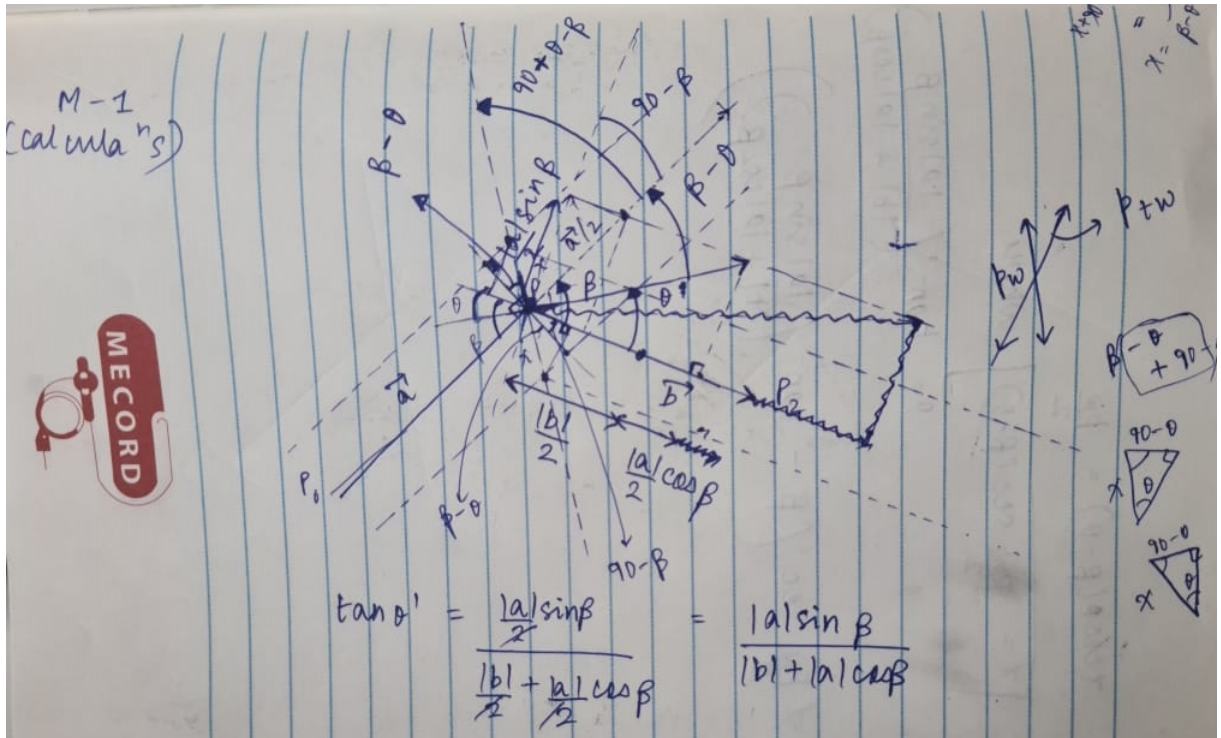 M-1
(calculaⁿs)
MECORD
β-θ
90+θ-β
90-β
β-θ
|a|sinβ
a⃗/2
β
θ'
θ
β
a⃗
b⃗
P₂
P₀
|b|/2
|a|/2 cosβ
β-θ
90-β
x+90
=
x = β-θ
P+W
PW
β-θ
+ 90-
90-θ
x
θ
90-θ
x
θ
tanθ' = (|a|/2 sinβ) / (|b|/2 + |a|/2 cosβ) = |a|sinβ / (|b|+|a|cosβ)